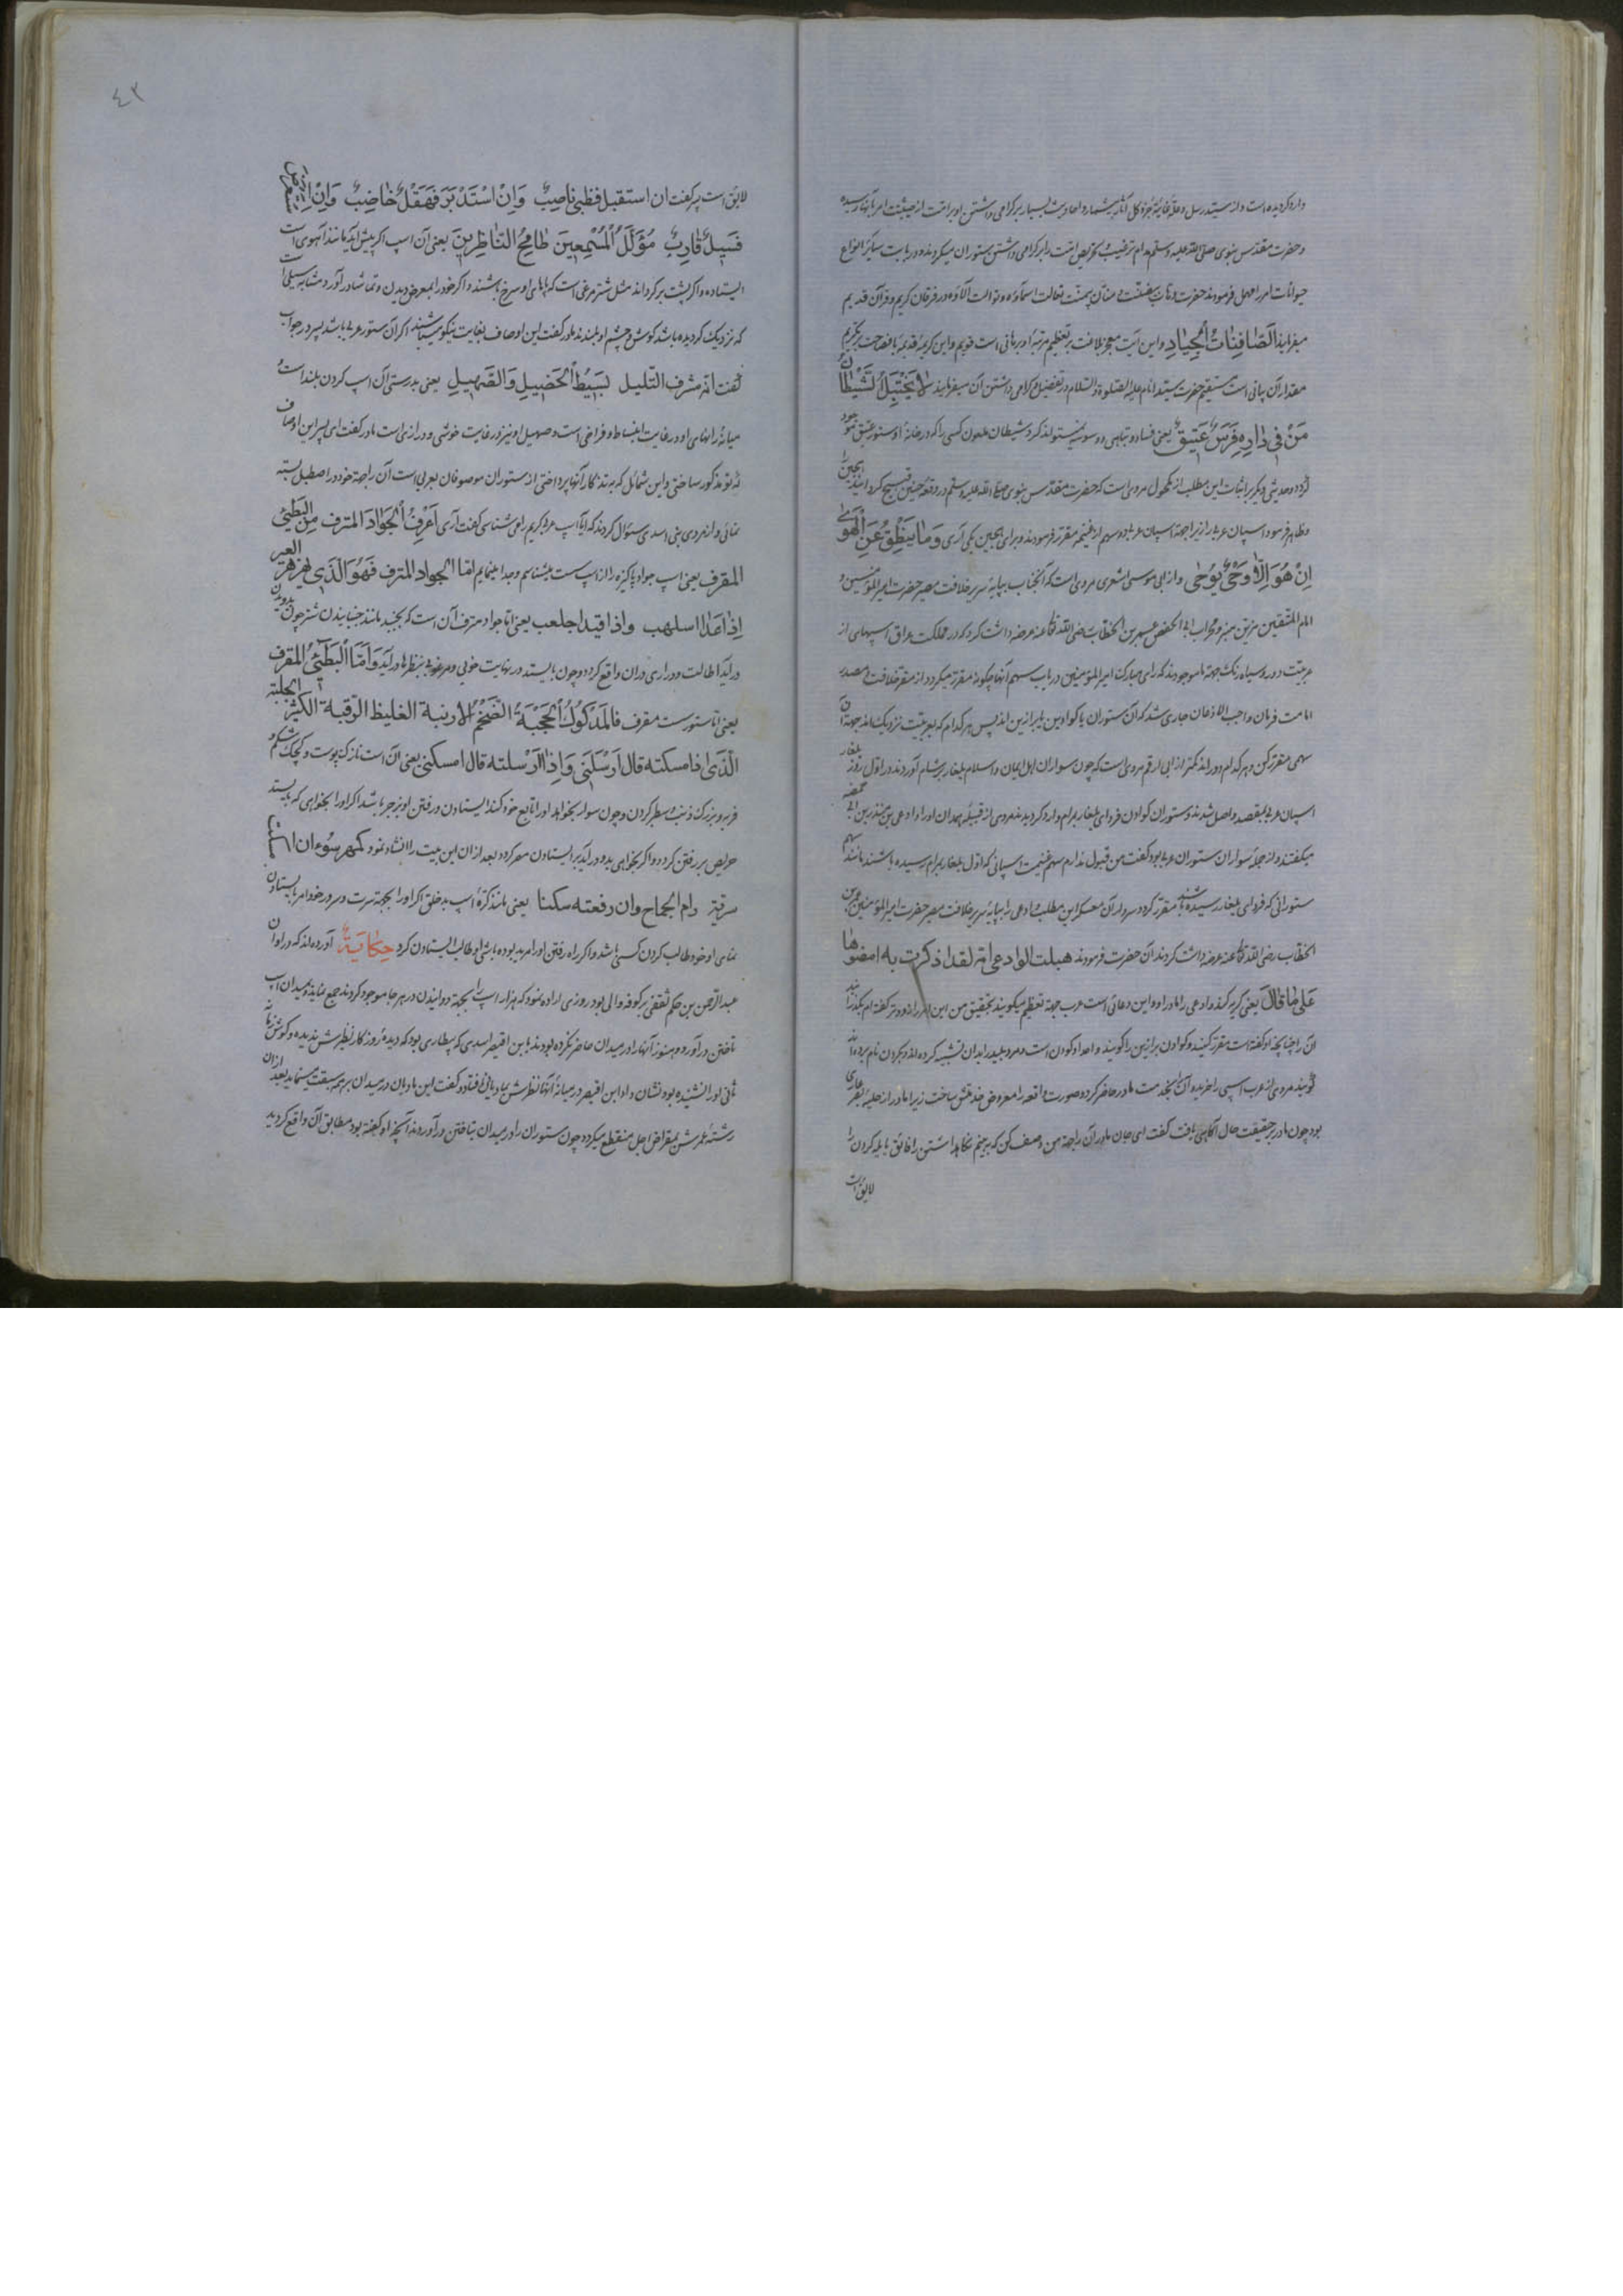 وارد کردیده است و از سید رسل و علت غائیه جزو کل آثار بیشمار و احادیث بسیار بر کرامی داشتن او بر امت از حیثیت امر بآنها رسیده
و حضرت مقدس نبوی صلی الله علیه وسلم مدام ترغیب و تحریص امت را بر کرامی داشتن ستوران میکردند و در بابت سایر انواع
حیوانات امر را مهمل فرمودند حضرت منان تعالت اسماؤه و توالت آلاؤه در فرقان کریم و قرآن قدیم
میفرماید الصَّافِنَاتُ الْجِيَادِ و این آیت معجز بلاغت بر تعظیم مرتبهٔ او برهانی است قویم و این کریمهٔ قدیمه با فصاحت بتکریم
مقدار آن بیانی است مستقیم حضرت سید انام علیه الصلوة والسلام در تفضیل و کرامی داشتن آن میفرمایند لَا يَخْتَبِلُ الشَّيْطَانُ
مَنْ فِي دَارِهِ فَرَسٌ عَتِيقٌ یعنی فساد و تباهی و وسوسه نمیتواند کرد شیطان ملعون کسی را که در خانهٔ او ستور عتیق موجود
کردد و حدیثی دیکر بر اثبات این مطلب از مکحول مروی است که حضرت مقدس نبوی صلی الله علیه وسلم در وقعهٔ حنین
و ظاهر فرمود اسپان عربی را زیرا جهة اسپان عربی دو سهم از غنیمه مقرر فرمودند و برای هجین یکی آری وَمَا يَنْطِقُ عَنِ الْهَوَى
اِنْ هُوَ اِلَّا وَحْيٌ يُوحَى و از ابی موسی اشعری مروی است که آنجناب بپایهٔ سریر خلافت مصیر حضرت امیر المؤمنین و
امام المتقین مزین منبر و محراب ابی الحفص عمر بن الخطاب رضی الله تعالی عنه عرضه داشت کرد که در مملکت عراق اسپهای از
عربیت دور و سیاه رنک جهة ما موجودند که رای مبارک امیر المؤمنین در باب سهم آنها چکونه مقرر میکردد از مقر خلافت مصدر
امامت فرمان واجب الاذعان جاری شد که آن ستوران یا کوادن یا برازین اند پس هر کدام که بعربیت نزدیک اند جهة آن
سهمی مقرر کن و هر کدام دور اند مکن از ابی ارقم مروی است که چون سواران اهل ایمان و اسلام بایلغار بر شام آوردند در اول روز
اسپان عربی بمقصد واصل شدند و ستوران کوادن فردای یلغار بمرام وارد کردیدند مردی از قبیلهٔ همدان او را وادعی منذر بن ابی حمصه
میکفتند و از جملهٔ سواران ستوران عربی بود کفت من قبول ندارم سهم غنیمت اسپانی که اول یلغار بمرام رسیده باشند مانند سهم
ستورانی که فردای یلغار رسیده باشند مقرر کردد سردار آن معسکر این مطلب وادعی را بپایهٔ سریر خلافت مصیر حضرت امیر المؤمنین عمر بن
الخطاب رضی الله تعالی عنه عرضه داشت کردند آن حضرت فرمودند هبلت الوادعی امه لقد اذکرت به امضوها
عَلَى مَا قَالَ یعنی کریه کند وادعی را مادر او و این دعائی است عرب جهة تعظیم میکویند بتحقیق من این امر را کفته ام بکذرانید
آن را چنانچه او کفته است مقرر کنید و کوادن برازین را کویند و احد او کودن است و مرد بلید را بدان تشبیه کرده اند و بکردن نام برده اند
کویند مردی از عرب اسپی را خریده آن را بخدمت مادر حاضر کرد و صورت واقعه را معروض خدمتش ساخت زیرا مادر از حلیهٔ بصر عاری
بود چون مادر بر حقیقت حال آکاهی یافت کفت ای جان مادر آن را جهة من وصف کن که ببینم نکاهداشتن را فائق یا یله کردن را
لایق است
٤٣
لایق است پسر کفت ان استقبل فظبی ناصِبٌ وَاِنْ اسْتَدْبَرَ فَهَقْلٌ خَاضِبٌ وَاِنْ استعرض
فَسِيدٌ قَارِبٌ مُؤَلَّلُ الْمُسْمِعَيْنِ طَامِحُ النَّاظِرَيْنِ یعنی آن اسپ اکر پیش آید مانند آهوی است
ایستاده و اکر پشت برکرداند مثل شتر مرغی است که پاهای او سرخ باشند و اکر خود را بمعرض دیدن و تماشا در آورد مشابه سیلی است
که نزدیک کردیده باشد کوش و چشم او بلندند مادر کفت این اوصاف بغایت نیکو میباشند اکر آن ستور عربی باشد پسر در جواب
کفت انه مشرف التلیل بَسِيطُ الْخَصِيلِ وَالصَّهِيلِ یعنی بدرستی آن اسپ کردن بلند است
میانهٔ رانهای او در غایت انبساط و فراخی است و صهیل او نیز در غایت خوشی و درازی است مادر کفت ای پسر این اوصاف
که تو مذکور ساختی و این شمائل که به تذکار آنها پرداختی از ستوران موصوفان بعربی است آن را جهة خود در اصطبل بسته
نمائی و از مردی بنی اسدی سئوال کردند که آیا اسپ عربی کریم را می شناسی کفت آری اَعْرِفُ الْجَوَادَ المترف مِنَ الْبَطِيءِ
المقرف یعنی اسپ جواد پاکیزه را از اسپ سست میشناسم و جدا مینمایم امّا الجواد المترف فَهُوَ الَّذِي لهز لهز العیر
اِذَا عَدَا اسلهب واذا قید اجلعب یعنی امّا جواد مترف آن است که بجنبد مانند جنبانیدن شتر چون بدویدن
در آید اطالت و درازی در آن واقع کردد و چون بایستد در نهایت خوبی و مرغوبی بنظرها در آید وَاَمَّا الْبَطِئُ المقرف
یعنی امّا ستور سست مقرف فالمَدْكُوكُ الْحَجَبَةُ الضَّخْمُ الارنبة الغلیظ الرقبة الکثیر الجلبة
الَّذی اذا امسکته قال اَرْسِلْنِي وَاِذَا اَرْسلته قال امسکنی یعنی آن است نازک پوست و کوچک شکم و
فربه و بزرک ذنب و سطبر کردن و چون سوار بخواهد او را تابع خود کند ایستادن و رفتن او بزجر باشد اکر او را بخواهی که بایستد
حریص بر رفتن کردد و اکر بخواهی بدو در آید بر ایستادن مصر کردد بعد از آن این بیت را انشاد نمود کمهر سُوء ان
سرته رام الجماح وان رفعته سکنا یعنی مانند کرهٔ اسپ بد خلق اکر او را بجهة سرت و سرور خود امر بایستادن
نمای او خود طالب کردن کشی باشد و اکر راه رفتن او را مرید بوده باشی او طالب ایستادن کردد حِکَایَةٌ آورده اند که در اوان
عبد الرحمن بن حکم ثقفی بر کوفه والی بود روزی اراده نمود که هزار اسپ را بجهة دوانیدن در هر جا موجود کردند جمع نماید و بمیدان اسپ
تاختن در آورد و هنوز آنها را در میدان حاضر نکرده بودند با ابن اقیصر اسدی که بیطاری بود که دیدهٔ روزکار نظیرش ندیده و کوش زمانه
ثانی او را نشنیده بود نشان داد ابن اقیصر در میانهٔ آنها نظرش بمادیانی افتاد و کفت این مادیان در میدان بر همه سبقت مینماید بعد از آن
رشتهٔ عمرش بمقراض اجل منقطع میکردد چون ستوران را در میدان بتاختن در آوردند آنچه او کفته بود مطابق آن واقع کردید